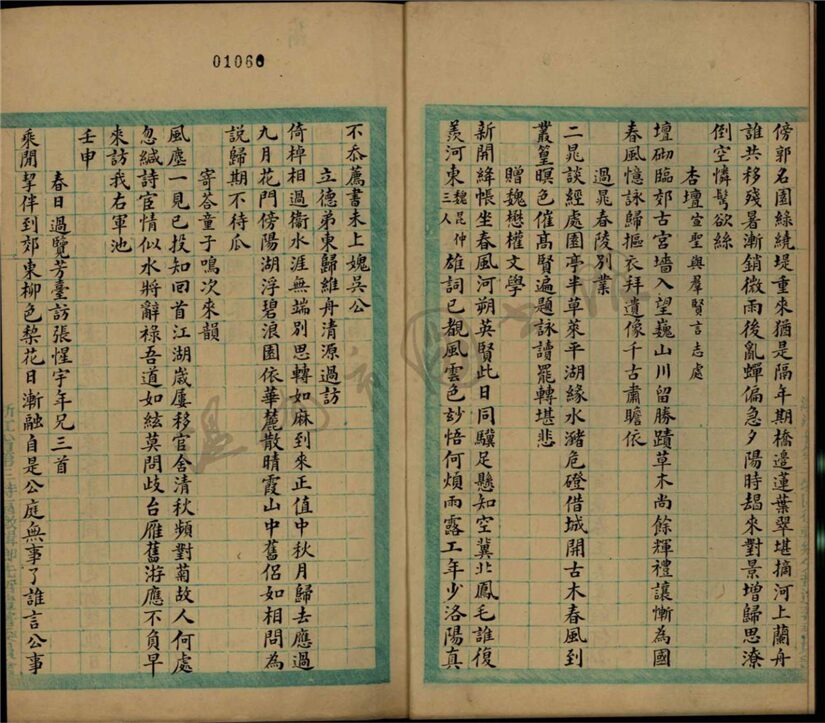 傍郭名園綠繞堤重來猶是隔年期橋邉蓮葉翠堪摘河上蘭舟
誰共移殘暑漸銷微雨後亂蟬偏急夕陽時朅來對景增歸思潦
倒空憐髩欲絲
杏壇宣聖與羣賢言志處
壇砌臨郊古宮墻入望巍山川留勝蹟草木尚餘輝禮讓慚為國
春風憶詠歸摳衣拜遺像千古肅瞻依
過晁春陵别業
二晁談經處園亭半草萊平湖緣水瀦危磴借城開古木春風到
叢篁暝色催髙賢遍題詠讀罷轉堪悲
贈魏懋權文學
新開絳帳坐春風河朔英賢此日同驥足懸知空冀北鳳毛誰復
羨河東魏昆仲三人雄詞已覩風雲色玅悟何煩雨露工年少洛陽真
01066
不忝薦書未上媿吳公
立德弟東歸維舟清源過訪
倚棹相過衞水涯無端别思轉如麻到來正值中秋月歸去應過
九月花門傍陽湖浮碧浪園依華麓散晴霞山中舊侶如相問為
説歸期不待瓜
寄荅童子鳴次來韻
風塵一見已投知回首江湖嵗屢移官舎清秋頻對菊故人何處
忽緘詩宦情似水將辭禄吾道如絃莫問歧台雁舊游應不負早
來訪我右軍池
壬申
春日過覽芳臺訪張惺宇年兄三首
乘閒挈伴到郊東柳色梨花日漸融自是公庭無事了誰言公事